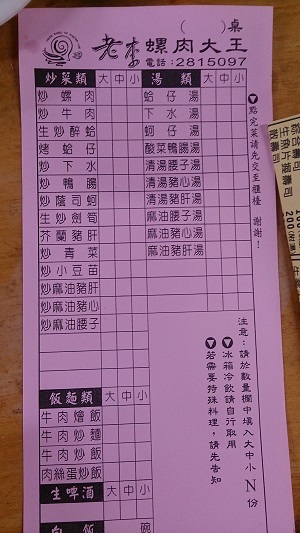 (　)桌
老李螺肉大王
電話:2815097
炒菜類 大 中 小 湯類 大 中 小
炒螺肉 蛤仔湯
炒牛肉 下水湯
生炒醉蛤 蚵仔湯
烤蛤仔 酸菜鴨腸湯
炒下水 清湯腰子湯
炒鴨腸 清湯豬心湯
炒蔭司蚵 清湯豬肝湯
生炒劍筍 麻油腰子湯
芥蘭豬肝 麻油豬心湯
炒青菜 麻油豬肝湯
炒小豆苗
炒麻油豬肝
炒麻油豬心
炒麻油腰子
飯麵類 大 中 小
牛肉燴飯
牛肉炒麵
牛肉炒飯
肉絲蛋炒飯
生啤酒 大 中 小
白飯 碗
點完菜請先交至櫃檯 謝謝!
注意:請於數量欄中填入大中小N份
冰箱冷飲請自行取用
若需要特殊料理,請先告知
綜合壽司
生魚片握壽司 200